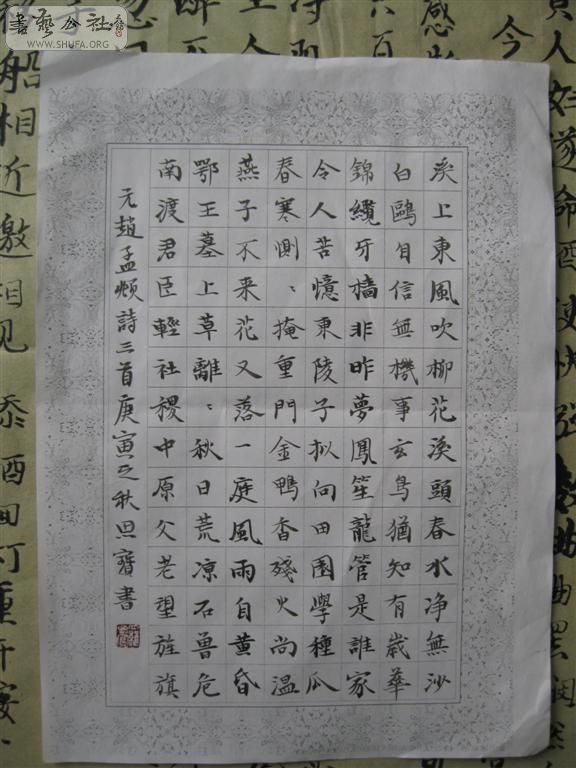 書藝公社
WWW.SHUFA.ORG
溪上東風吹柳花溪頭春水净無沙
白鷗自信無機事玄鳥猶知有歲華
錦纜牙檣非昨夢鳳笙龍管是誰家
令人苦憶東陵子拟向田園學種瓜
春寒惻〻掩重門金鴨香殘火尚温
燕子不来花又落一庭風雨自黄昏
鄂王墓上草離〻秋日荒凉石兽危
南渡君臣輕社稷中原父老望旌旗
元趙孟頫詩三首庚寅之秋思寶書
遂命酒使快
船相近邀相见添酒回灯重开宴